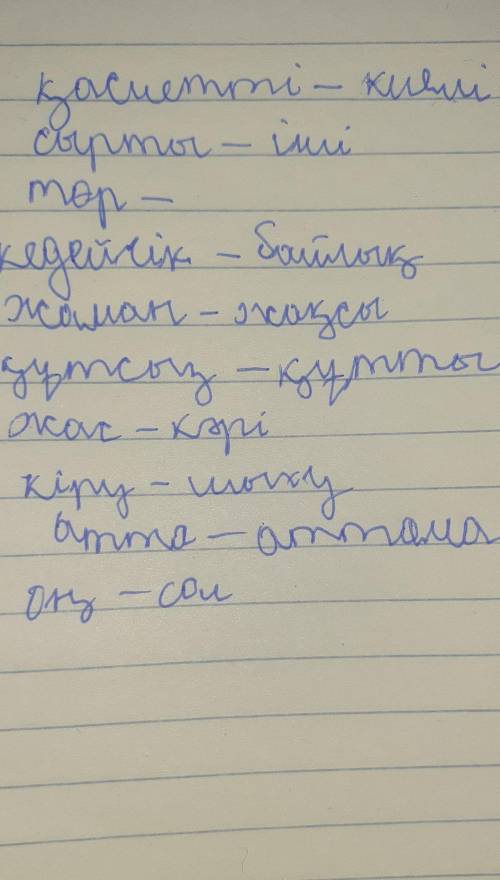 қасиетті – киелі
сырты – іші
төр –
кедейлік – байлық
жаман – жақсы
құтсыз – құтты
жас – кәрі
кіру – шығу
атта – аттама
оң – сол